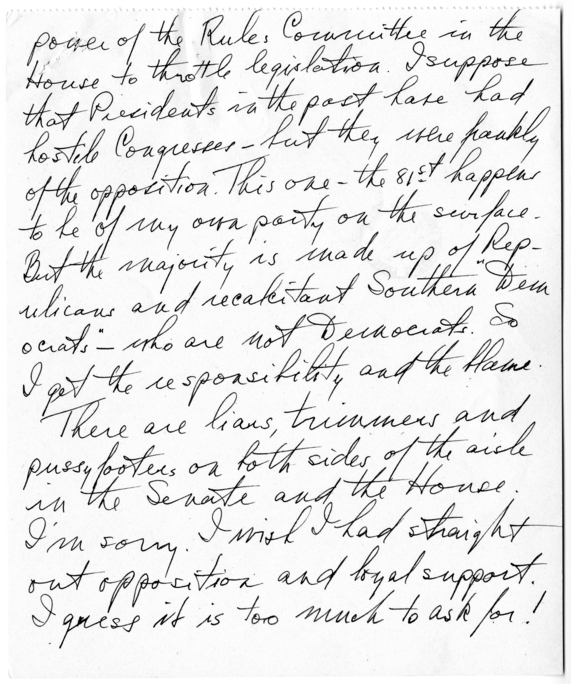 power of the Rules Committee in the
House to throttle legislation. I suppose
that Presidents in the past have had
hostile Congresses – but they were frankly
of the opposition. This one – the 81st happens
to be of my own party on the surface.
But the majority is made up of Rep-
ulicans and recalcitant Southern "Dem
ocrats" – who are not Democrats. So
I get the responsibility and the blame.
There are liars, trimmers and
pussyfooters on both sides of the aisle
in the Senate and the House.
I'm sorry. I wish I had straight
out opposition and loyal support.
I guess it is too much to ask for!